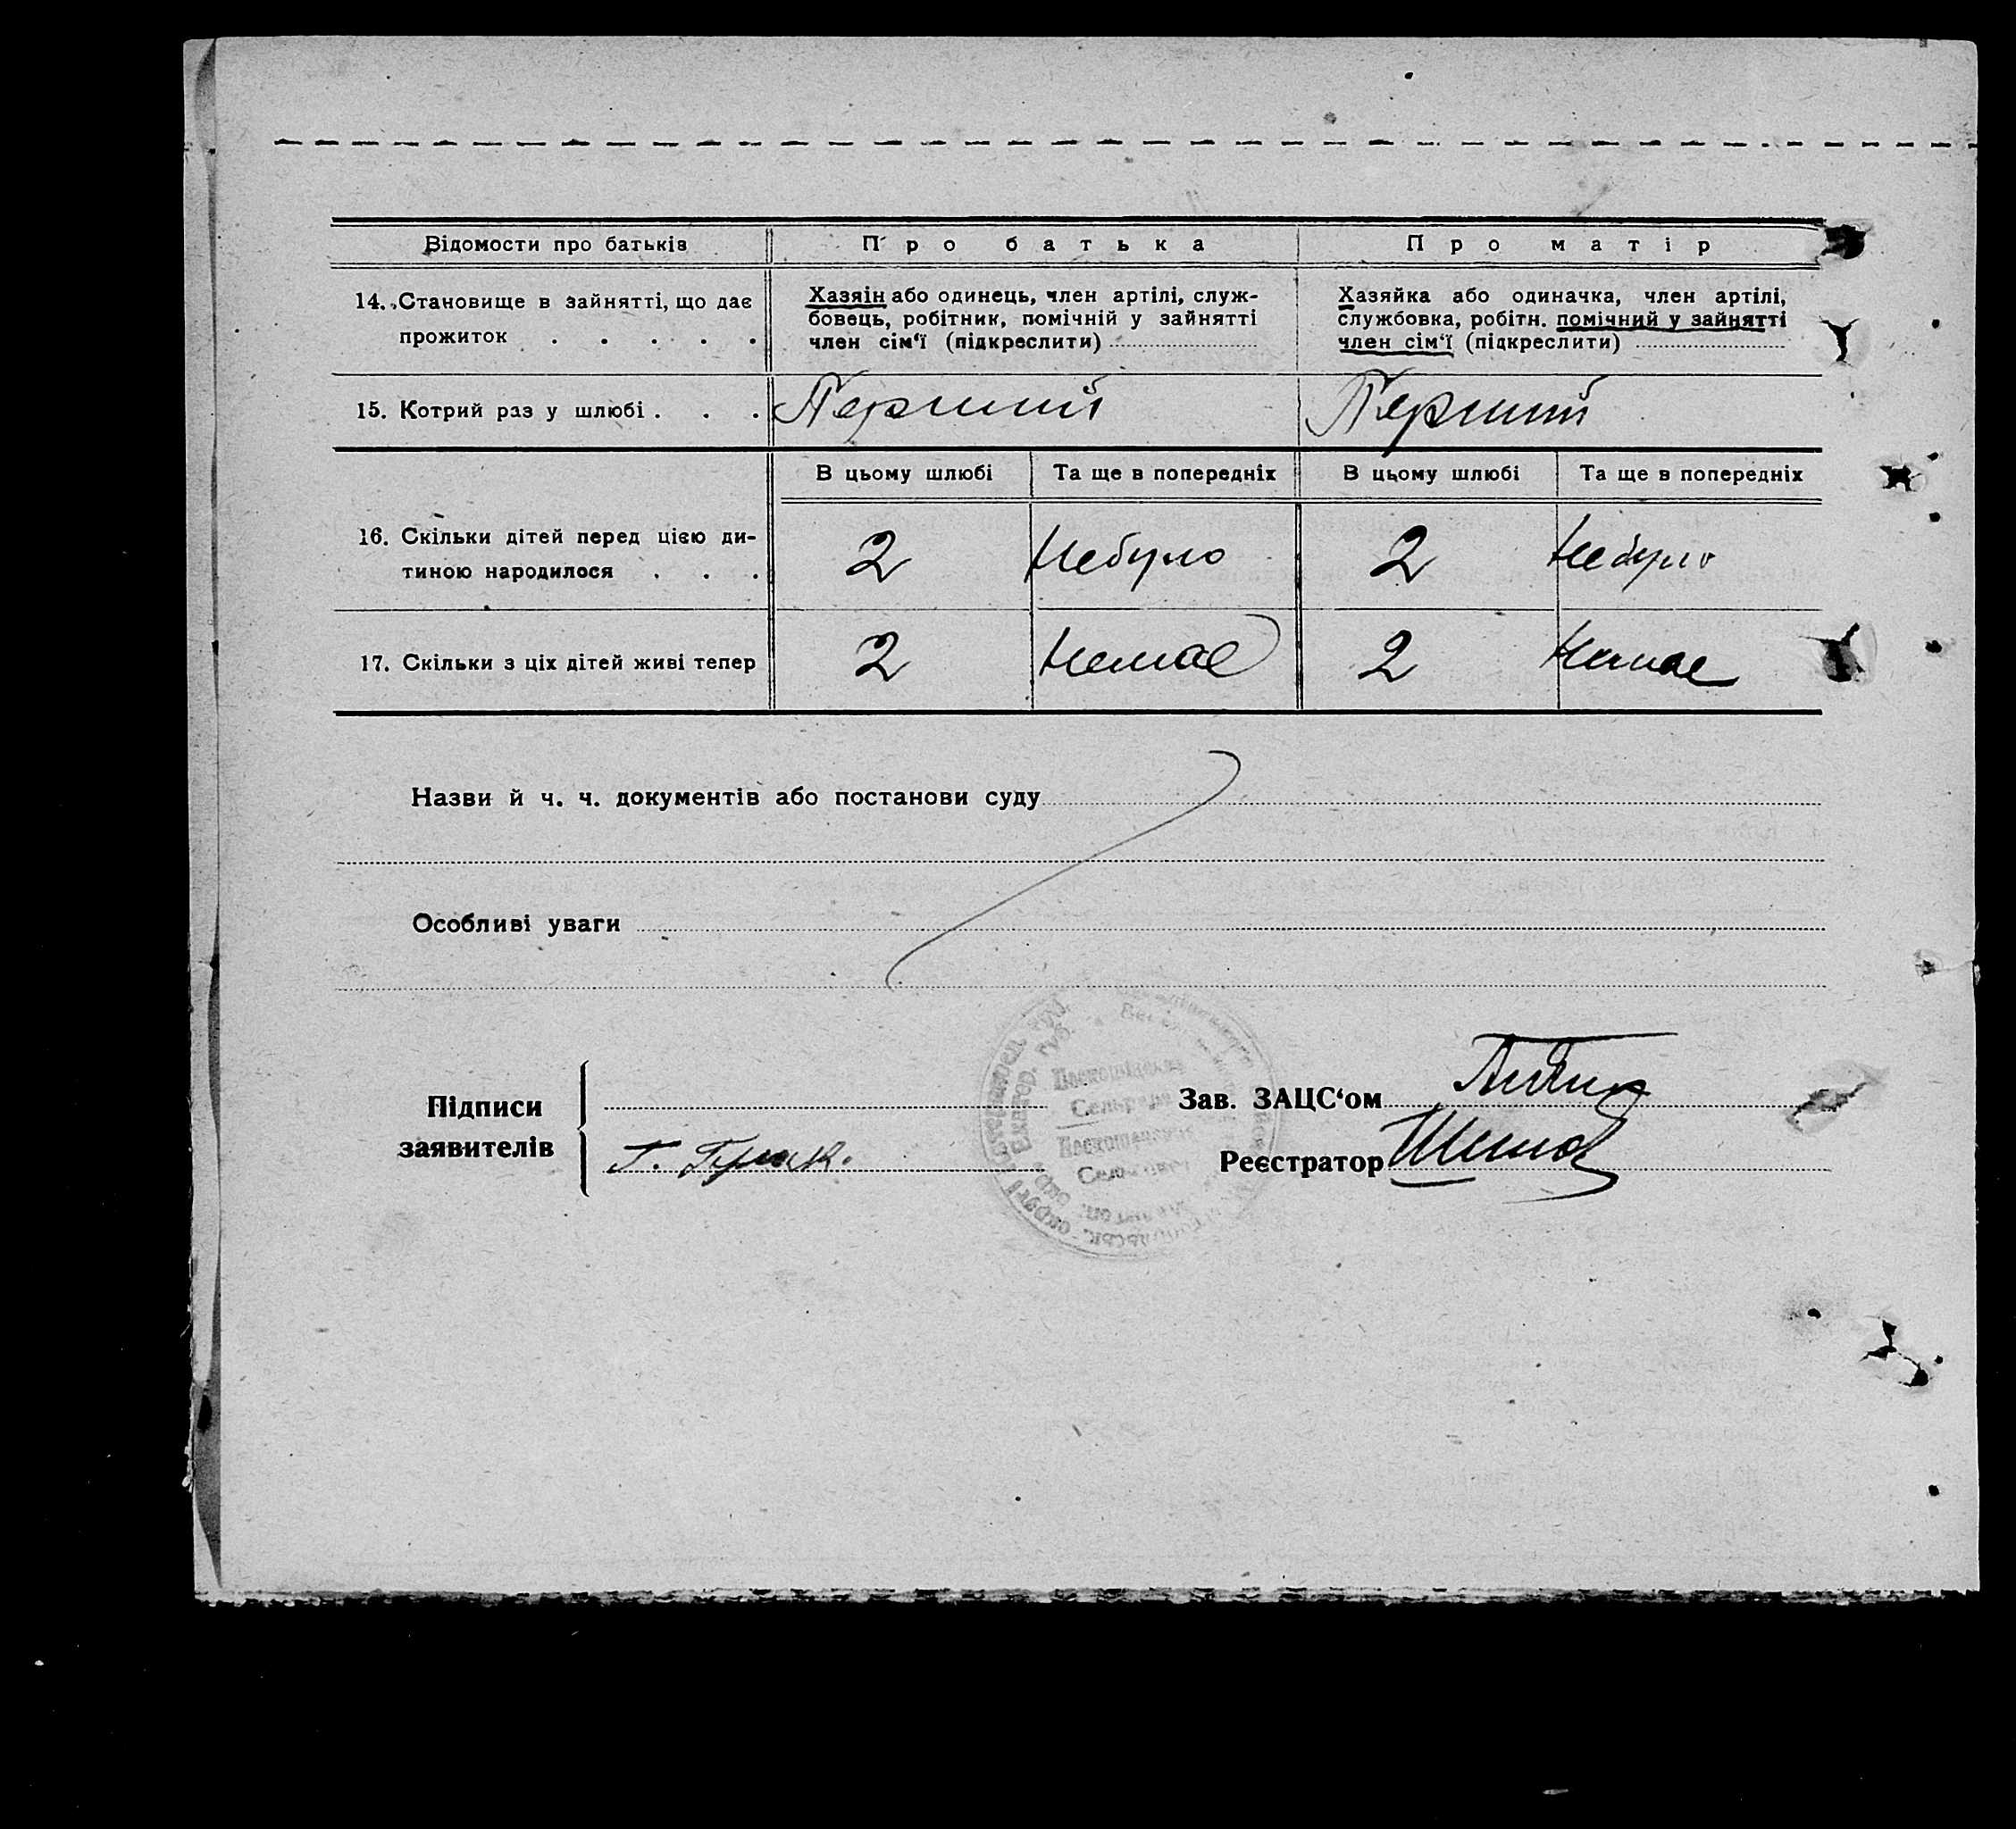 Відомости про батьків
Про батька
Про матір
14. Становище в зайнятті, що дає
прожиток . . . . .
Хазяїн або одинець, член артілі, служ-
бовець, робітник, помічній у зайнятті
член сім‘ї (підкреслити)
Хазяйка або одиначка, член артілі,
службовка, робітн. помічний у зайнятті
член сім‘ї (підкреслити)
15. Котрий раз у шлюбі . . .
Перший
Перший
В цьому шлюбі
Та ще в попередніх
В цьому шлюбі
Та ще в попередніх
16. Скільки дітей перед цією ди-
тиною народилося . . .
2
Небуло
2
Небуло
17. Скільки з ціх дітей живі тепер
2
Немає
2
Немає
Назви й ч. ч. документів або постанови суду
Особливі уваги
Підписи
заявителів
Зав. ЗАЦС‘ом
Реєстратор